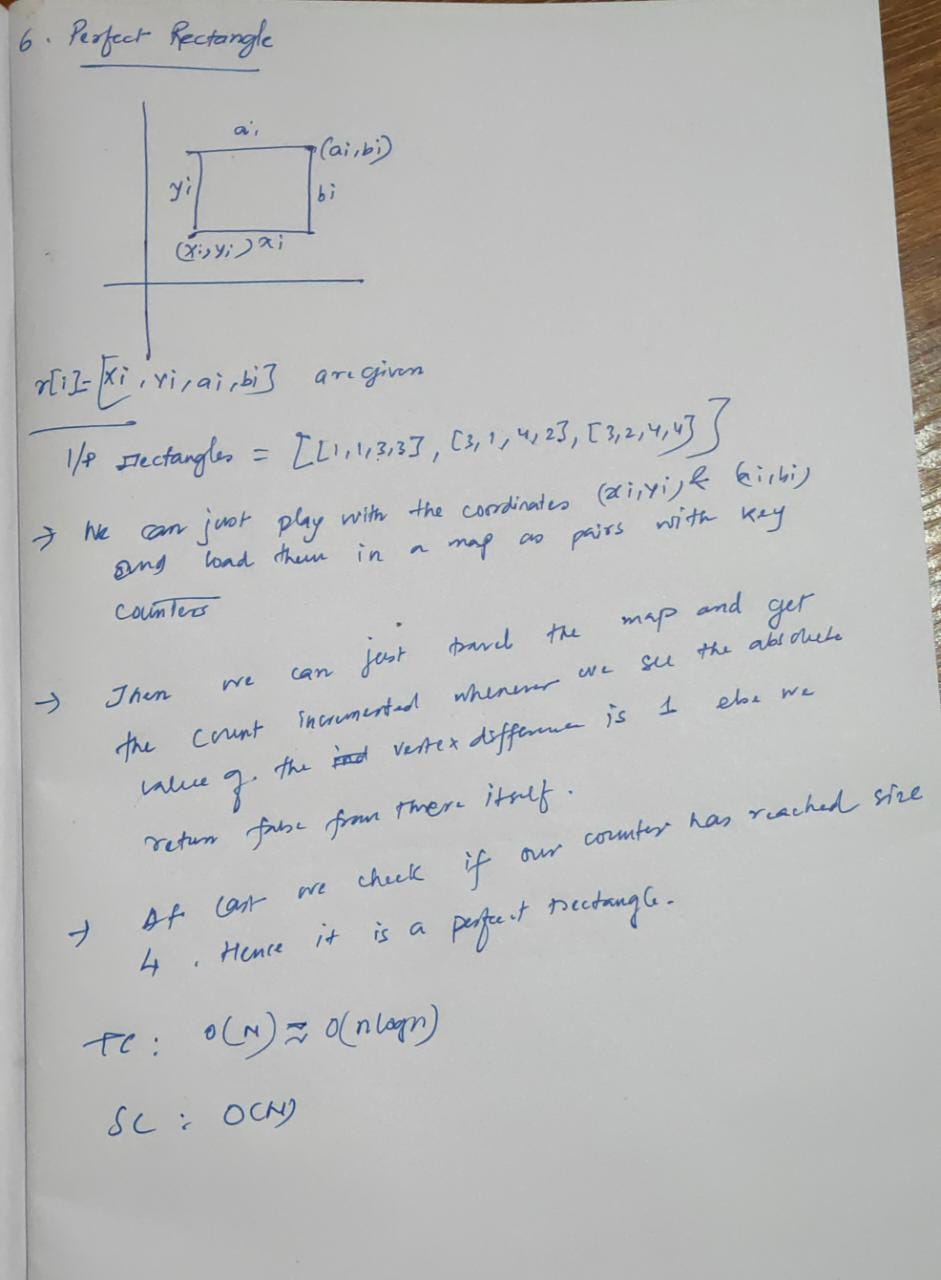 6. Perfect Rectangle
ai
(ai,bi)
yi
bi
(xi,yi) xi
r[i]=[xi, yi, ai, bi] are given
I/P rectangles = [[1,1,3,3], [3,1,4,2], [3,2,4,4]]
→ We can just play with the coordinates (xi,yi) & (ai,bi)
and load them in a map as pairs with key
counters
→ Then we can just travel the map and get
the count incremented whenever we see the absolute
value of the vertex difference is 1 else we
return false from there itself.
→ At last we check if our counter has reached size
4. Hence it is a perfect rectangle.
TC: O(N) ≈ O(nlogn)
SC: O(N)